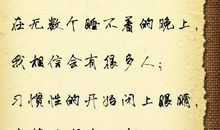 在无数个睡不着的晚上，
我相信会有很多人；
习惯性的开始闭上眼睛，